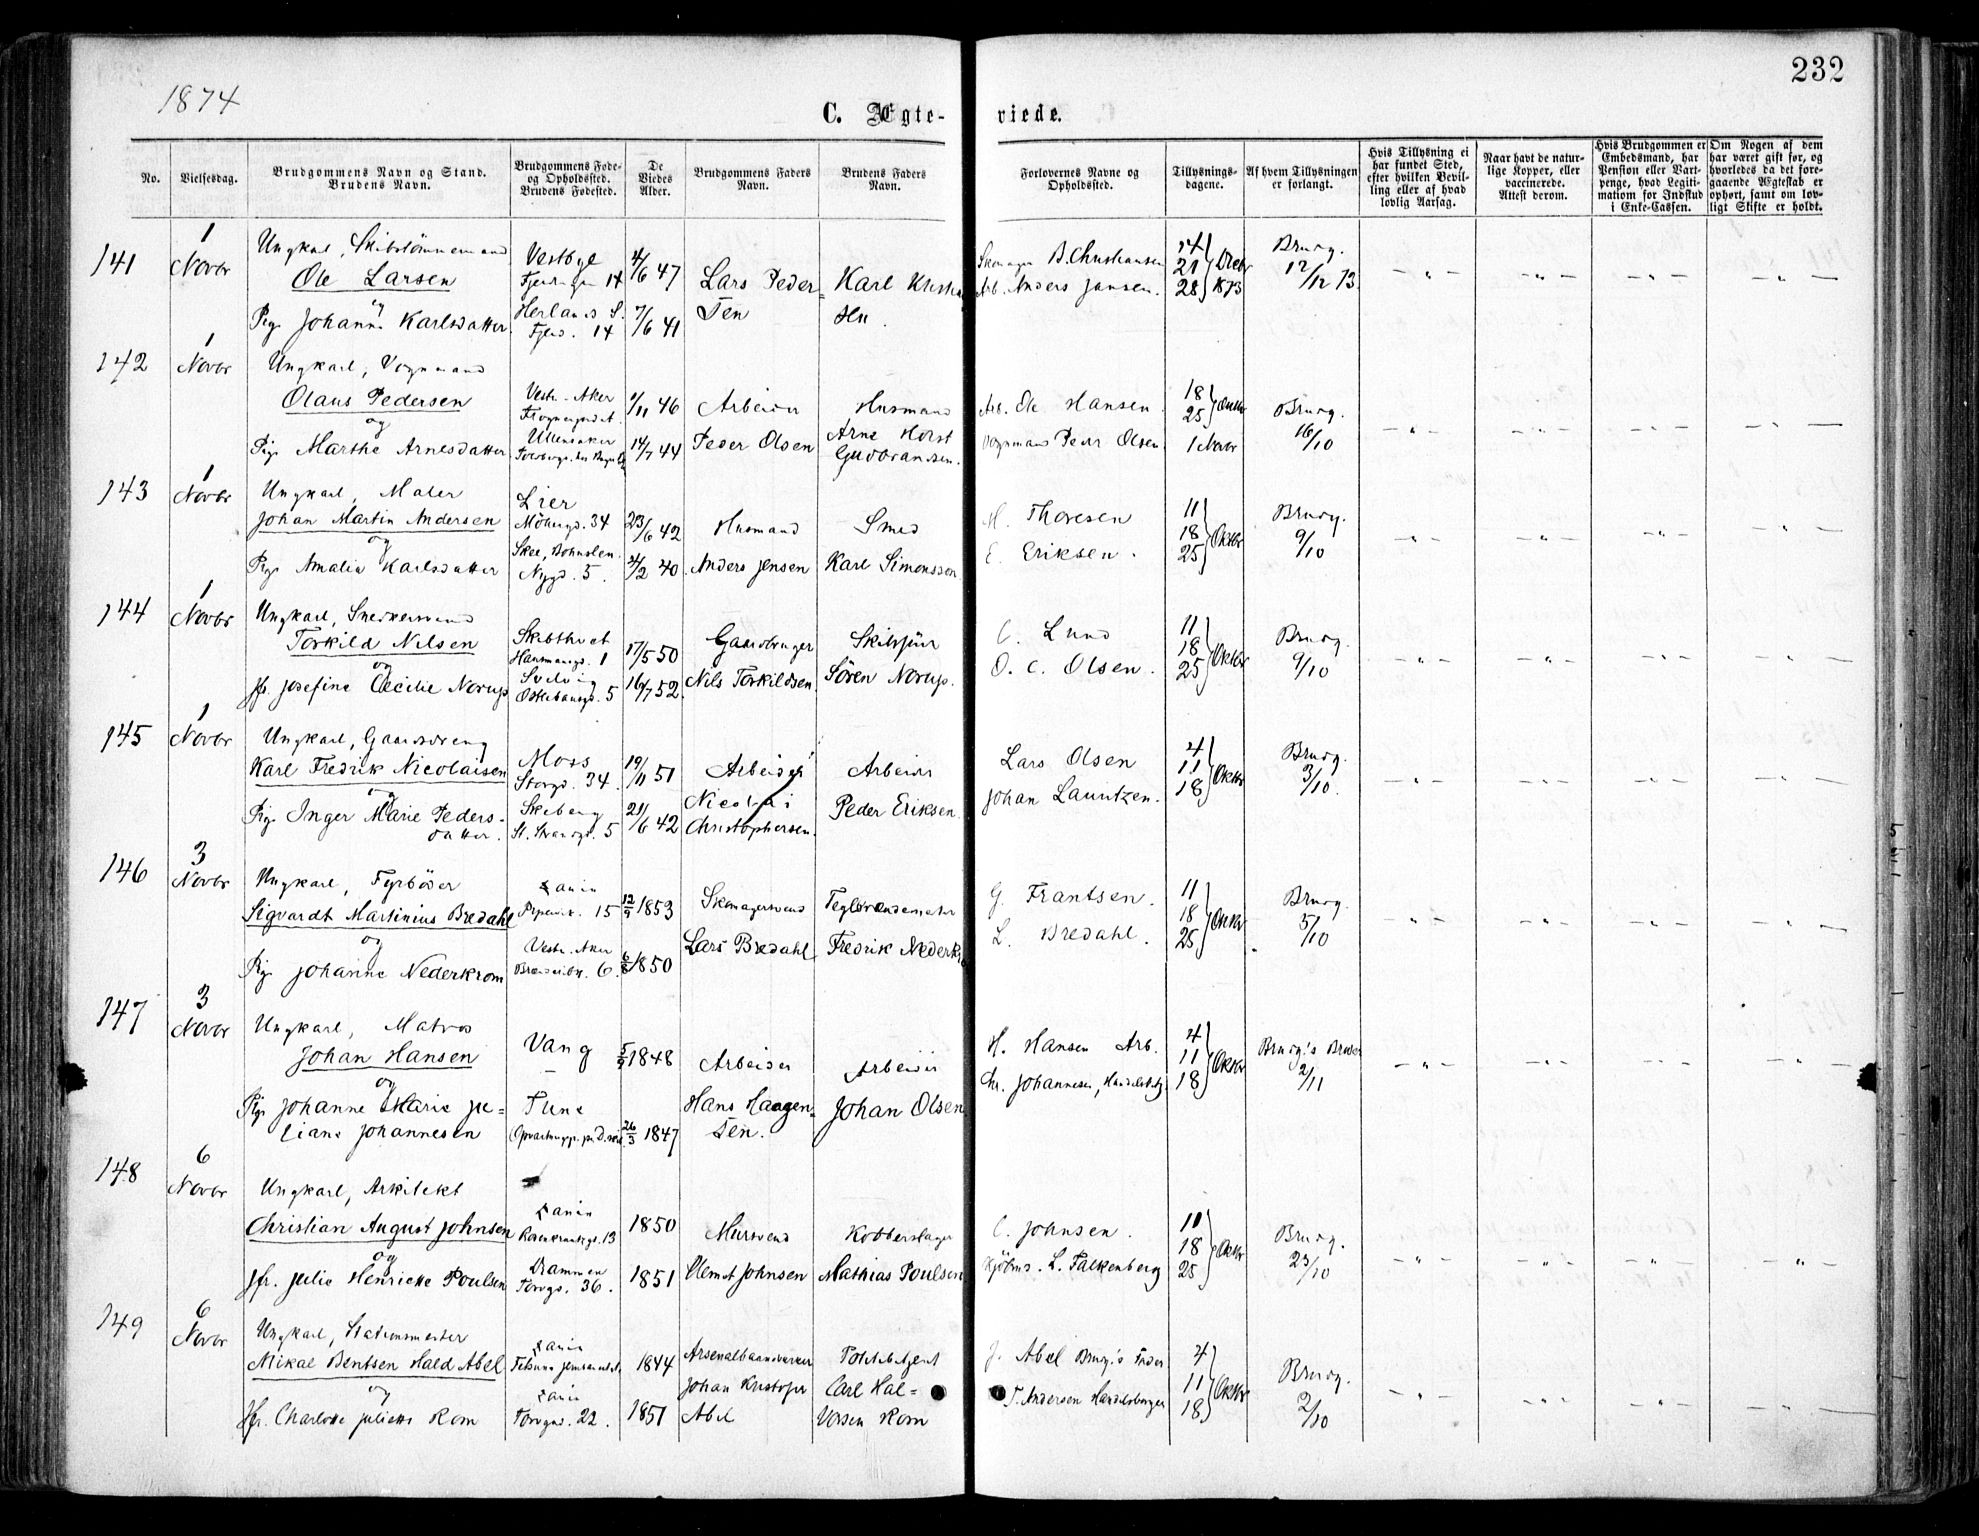 232
1874
C. Ægte- viede.
No.
Vielsesdag.
Brudgommens Navn og Stand.
Brudens Navn.
Brudgommens Føde-
og Opholdssted.
Brudens Fødested.
De
Viedes
Alder.
Brudgommens Faders
Navn.
Brudens Faders
Navn.
Forlovernes Navne og
Opholdssted.
Tillysnings-
dagene.
Af hvem Tillysningen
er forlangt.
Hvis Tillysning ei
har fundet Sted,
efter hvilken Bevil-
ling eller af hvad
lovlig Aarsag.
Naar havt de natur-
lige Kopper, eller
vaccinerede.
Attest derom.
Hvis Brudgommen er
Embedsmand, har
Pension eller Vart-
penge, hvad Legiti-
mation for Indskud
i Enke-Cassen.
Om Nogen af dem
har været gift før, og
hvorledes da det fore-
gaaende Ægteskab er
ophørt, samt om lov-
ligt Skifte er holdt.
141 1 Novbr
Ungkarl, Skibstømmermand
Ole Larsen
og
Pige Johanne Karlsdatter
Vestbye
14
14
4/6 47
7/6 41
Lars Peder-
sen
Karl Kristian
sen
Skomager B. Christiansen
Arb. Anders Jansen.
14
21
28
Decbr 1873
Brudg.
12/12 73.
142 1 Novbr
Ungkarl, Vognmand
Olaus Pedersen
og
Pige Marthe Arnesdatter
Vestr. Aker
Ullensaker
9/11 46
14/7 44
Arbeider
Peder Olsen
Husmand
Arne Horst
Gudbrandsen.
Arb. Ole Hansen
Vognmand Peder Olsen
18
25
Oktbr
1 Novbr
Brudg.
16/10
143 1 Novbr
Ungkarl, Maler
Johan Martin Andersen
og
Pige Amalia Karlsdatter
Lier
Möllergd. 34
Skee, Bohuslen.
Nygd. 5.
23/6 42
4/2 40
Husmand
Anders Jensen
Smed
Karl Simonsson
H. Thoresen
E. Eriksen.
11
18
25
Oktbr
Brudg.
9/10
144 1 Novbr
Ungkarl, Snedkersvend
Torkild Nilsen
og
Jfr. Josefine Cecilie Norup
Skibthvet
Hausmansgd. 1
Svelvig
5
17/5 50
16/7 52
Gaardbruger
Nils Torkildsen
Skibsfører
Sören Norup.
C. Lund
O. C. Olsen.
11
18
25
Oktbr
Brudg.
9/10
145 1 Novbr
Ungkarl, Gaardsdreng
Karl Fredrik Nicolaisen
og
Pige Inger Marie Peders-
datter.
Moss
Storgd. 34.
Skeberg
St. Strandgd. 5
19/11 51
21/6 42
Arbeider
Nicolai
Christophersen.
Arbeider
Peder Eriksen
Lars Olsen
Johan Lauritzen.
4
11
18
Oktbr
Brudg.
3/10.
146 3 Novbr
Ungkarl, Fyrböder
Sigvardt Martinius Bredahl
og
Pige Johanne Nederkrom
Xania
Pipervik. 15
Vestr. Aker
6.
12/9 1853
6/8 1850
Skomagersvend
Lars Bredahl
Teglbrændemester
Fredrik Nederkr
G. Frantsen.
L. Bredahl.
11
18
25
Oktbr
Brudg.
5/10
147 3 Novbr
Ungkarl, Matros
Johan Hansen
og
Pige Johanne Marie Ju-
liane Johannesen
Vang
Tune
5/9 1848
26/3 1847
Arbeider
Hans Haagen-
sen.
Arbeider
Johan Olsen
H. Hansen Arb.
Chr. Johannesen, Handelsbetj.
4
11
18
Oktbr
Brudg.'s Broder
2/11
148 6 Novbr
Ungkarl, Arkitekt
Christian August Johnsen
og
Jfr. Julie Henriette Poulsen
Xania
Rosenkrantzgd. 13
Drammen
Torvgd. 36.
1850
1851
Mursvend
Clemet Johnsen
Kobberslager
Mathias Poulsen
C. Johnsen.
Kjöbmd. L. Falkenberg
11
18
25
Oktbr
Brudg.
23/10
149 6 Novbr
Ungkarl, Stationsmester
Mikal Bentsen Hald Abel
og
Jfr. Charlotte Juliette Rom
Xania
Xania
Torvgd. 22.
1844
1851
Arsenalhaandværker
Johan Kristofer
Abel
Politibetjent
Carl Hal-
vorsen Rom
J. Abel Brudg.'s Fader
T. Andersen Handelsborger
4
11
18
Oktbr
Brudg.
2/10